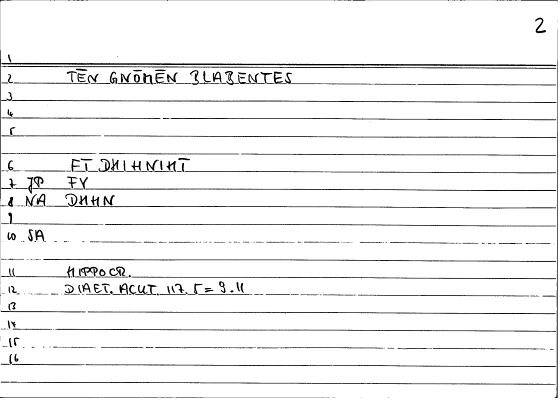 2
1
2 TĒN GNŌMĒN BLABENTES
3
4
5
6
7 JP FY
8 NA DHHN
9
10 SA
11 HIPPOCR.
12 DIAET. ACUT. 117.5 = 9.11
13
14
15
16